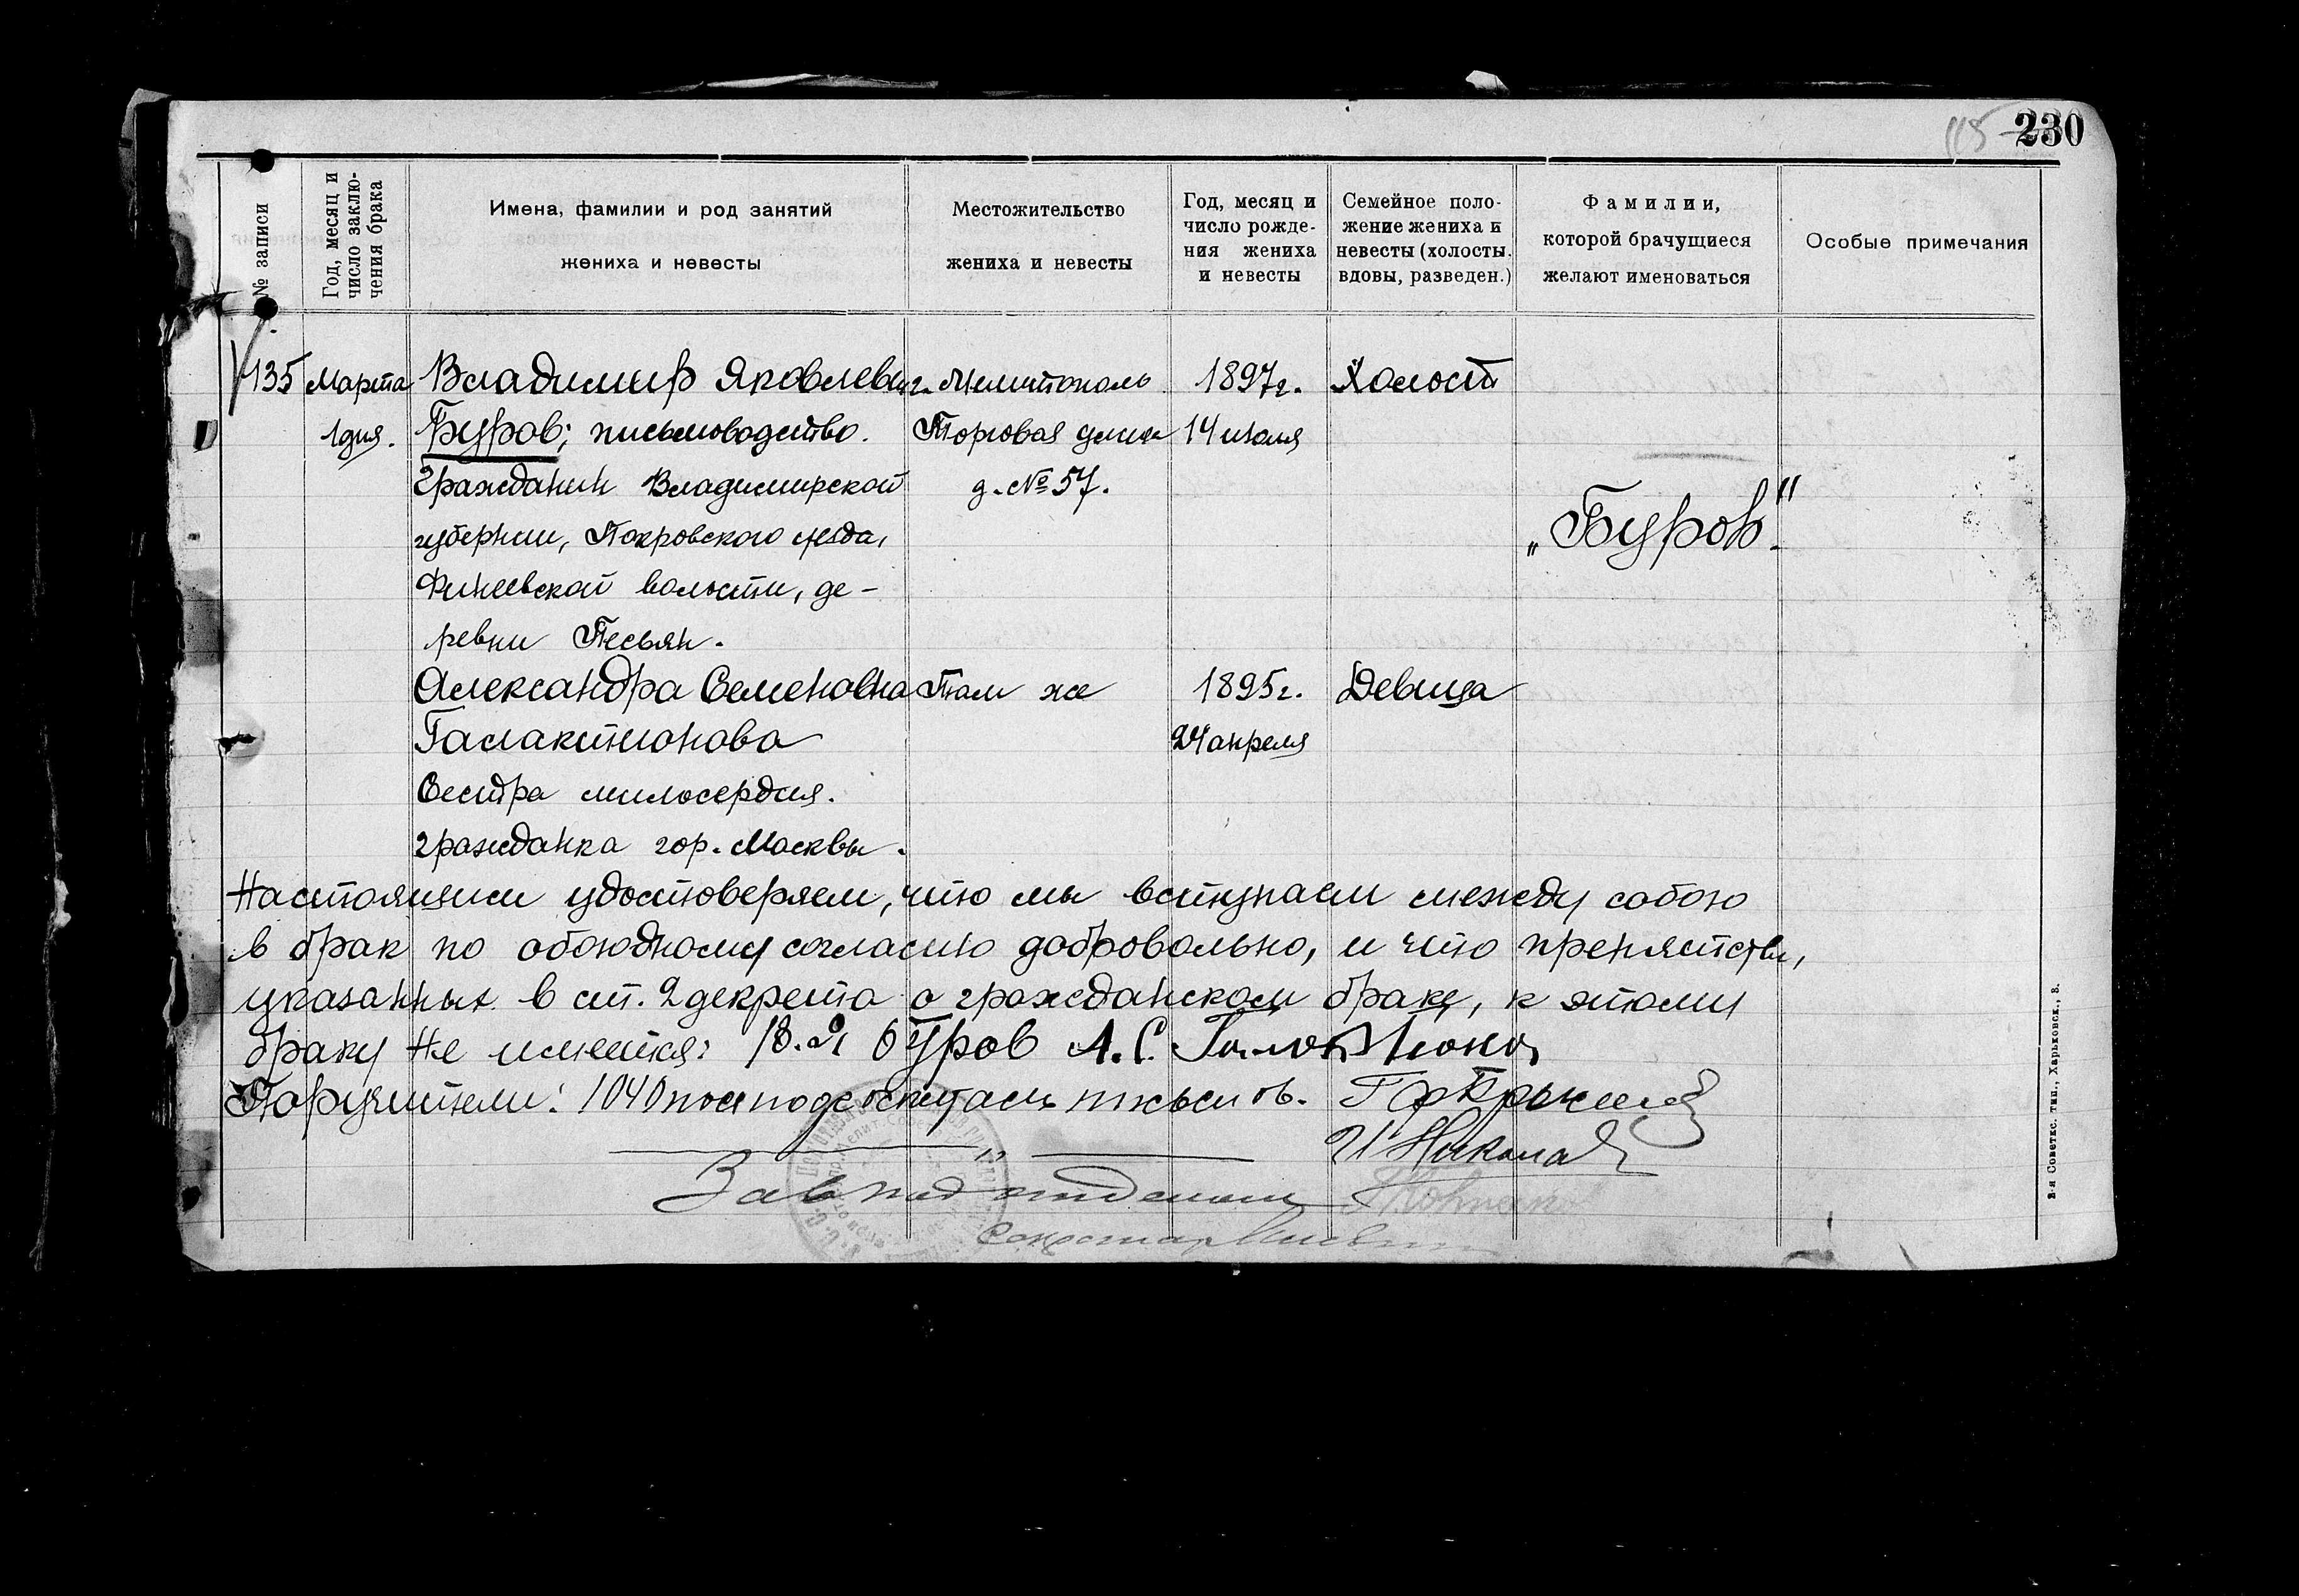 115 230
№ записи
Год, месяц и
число заклю-
чения брака
Имена, фамилии и род занятий
жениха и невесты
Местожительство
жениха и невесты
Год, месяц и
число рожде-
ния жениха
и невесты
Семейное поло-
жение жениха и
невесты (холосты,
вдовы, разведен.)
Фамилии,
которой брачущиеся
желают именоваться
Особые примечания
135 Марта Владимир Яковлевич г. Мелитополь 1897г. Холост
1 дня. Буров; письмоводство. Торговая улица 14 июля
Гражданин Владимирской д. № 57.
губернии, Покровского уезда, „Буров"
Финеевской волости, де-
ревни Песьян.
Александра Семеновна Там же 1895г. Девица
Галактионова 24 апреля
Сестра милосердия.
гражданка гор. Москвы.
Настоящим удостоверяем, что мы вступаем между собою
в брак по обоюдному согласию добровольно, и что препятствий,
указанных в ст. 2 декрета о гражданском браке, к этому
браку не имеется: Буров А. С. Галактионова
Поручители:
И Никола
Зав подотделом
Секретарь
2-я Советск. тип., Харьковск., 8.